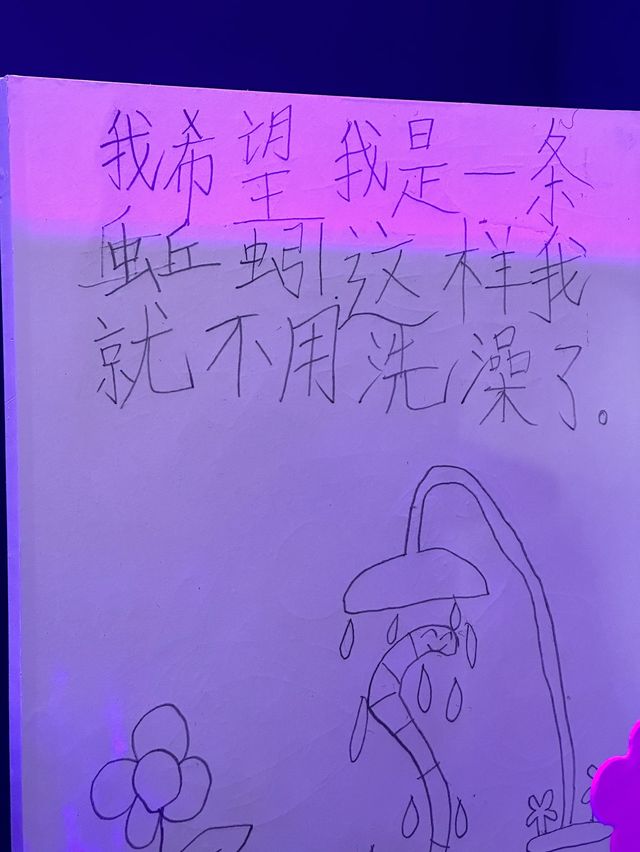 我希望我是一条
蚯蚓这样我
就不用洗澡了。